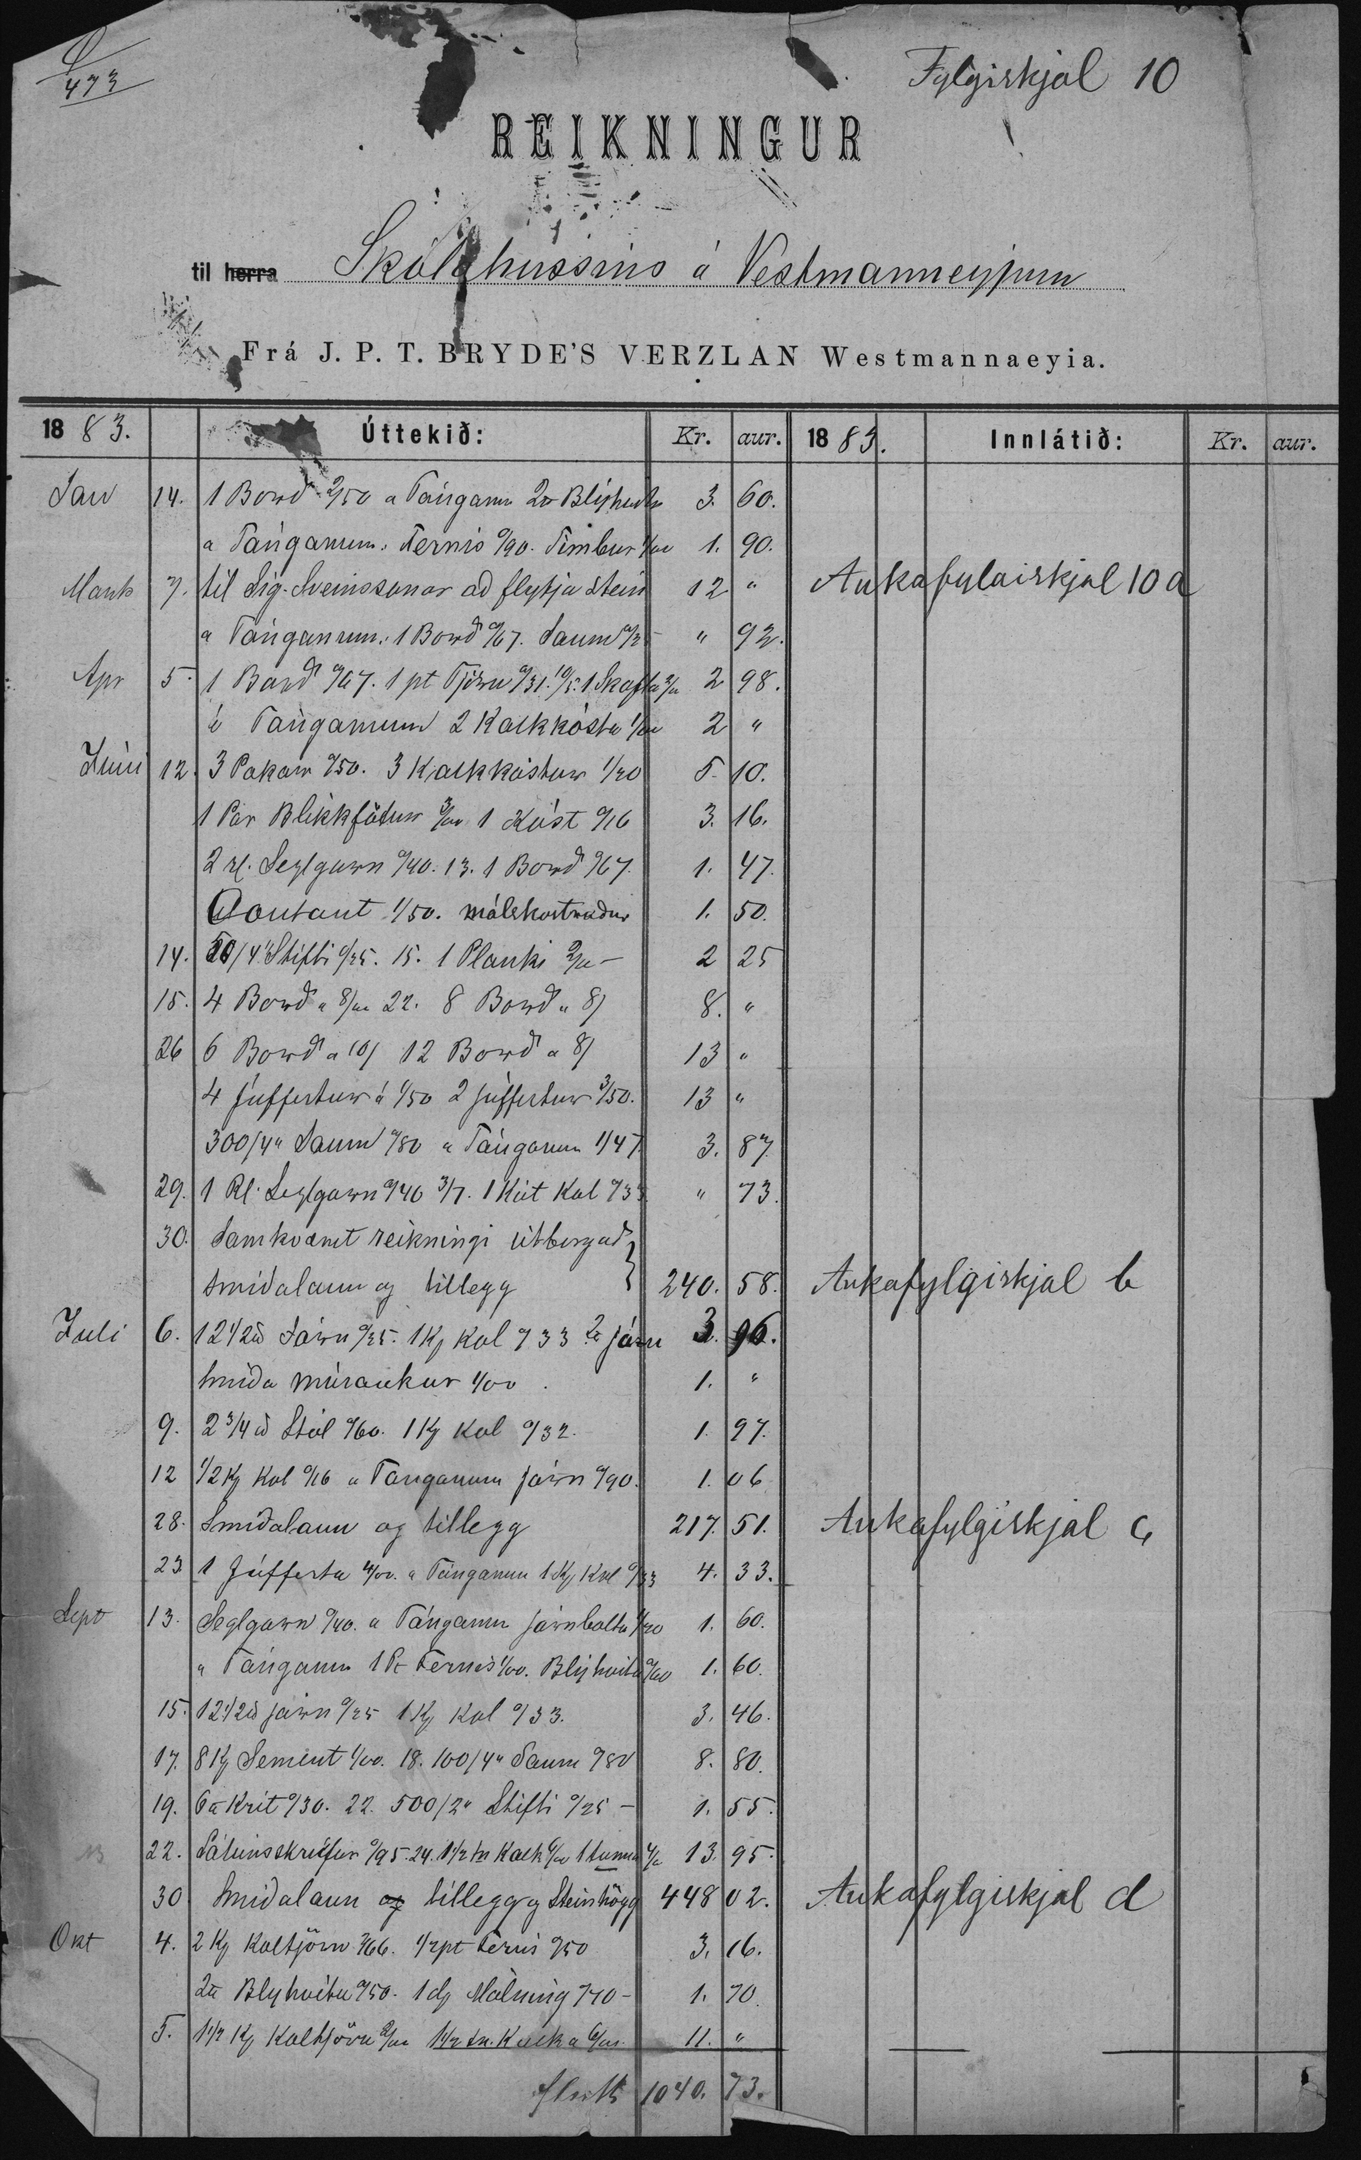 473
Fylgiskjal 10
REIKNINGUR
til herra Skólahússins á Vestmanneyjum
Frá J. P. T. BRYDE'S VERZLAN Westmannaeyia.
1883. Úttekið: Kr. aur. 1883. Innlátið: Kr. aur.
Jan 14. 1 Borð 2/50 a Tánganum 2 Blýhvítu 3. 60.
a Tánganum. Fernis 0/90. Timbur 1/00 1. 90.
7. til Sig. Sveinssonar að flytja stein 12 " Aukafylgiskjal 10 a
a Tánganum. 1 Borð 0/67. Saum 0/25 " 92.
Apr 5. 1 Borð 0/67. 1 pt Tjöru 0/31. 1 Skafta 2/00 2 98.
á Tánganum 2 Kalkkósta 1/00 2 "
Júni 12. 3 Pokar 0/50. 3 Kalkkóstur 1/20 5. 10.
1 Par Blikkfötur 3/00 1 Kúst 0/16 3. 16.
2 rl. Seglgarn 0/40. 13. 1 Borð 0/67. 1. 47.
Contant 1/50. málskostnaður 1. 50.
14. /4" Stifti 0/25. 15. 1 Planki 2/00 – 2 25
15. 4 Borð a 8/00 22. 8 Borð a 8/ 8. "
26 6 Borð a 10/ 12 Borð a 8/ 13 "
4 Júffertur á 1/50 2 júffertur 3/50. 13 "
300/4" Saum 0/80 a Tánganum 1/47 3. 87
29. 1 Rl. Seglgarn 0/40 3/7. 1 Kút Kol 0/33. " 73.
30. Samkvæmt reikningi útborgað
smiðalaun og tillegg 240. 58. Aukafylgiskjal b
Juli 6. 12 1/2 Járn 0/25. 1 Kj Kol 0/33 járn 3. 96.
smiða múraukur 1/00. 1. "
9. 2 3/4 Stál 0/60. 1 Kj Kol 0/32. 1. 97.
12 1/2 Kj Kol 0/16 a Tanganum járn 0/90. 1. 06
28. Smiðalaun og tillegg 217. 51. Aukafylgiskjal c
23 1 Júfferta 4/00. a Tánganum 1 Kj Kol 0/33 4. 33.
Sept 13. Seglgarn 0/40. a Tánganum járnbolta 1/20 1. 60.
a Tánganum 1 Pt Fernis 1/00. Blýhvíta 0/60 1. 60.
15. 12 1/2 járn 0/25 1 Kj Kol 0/33. 3. 46.
17. 8 Kj Sement 1/00. 18. 100/4" Saum 0/80 8. 80.
19. 6 Krit 0/30. 22. 500/2" Stifti 0/25 – 1. 55.
22. Látúnsskrúfur 0/95. 24. 1 1/2 tn Kalk 6/00 1 tunna 4/00 13. 95.
30 Smiðalaun og tillegg og Steinhögg 448 02. Aukafylgiskjal d
Okt 4. 2 Kj Koltjöru 2/66. 1/2 pt Fernis 0/50 3. 16.
2 Blyhvítu 0/50. 1 dj Málning 0/70 – 1. 70.
5. 1 1/2 Kj Koltjöru 2/00 1 1/2 tn. Kalk a 6/00. 11. "
flutt 1040. 73.